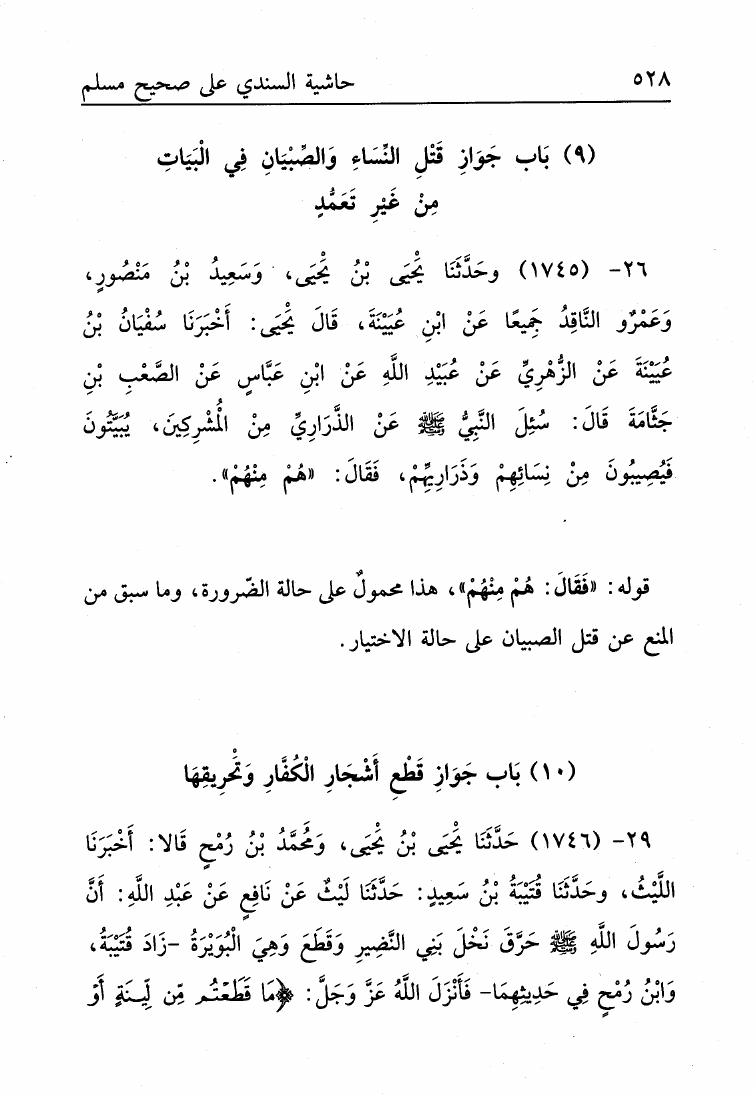 ٥٢٨ حاشية السندي على صحيح مسلم
(٩) بَاب جَوَازِ قَتْلِ النِّسَاءِ وَالصِّبْيَانِ فِي الْبَيَاتِ
مِنْ غَيْرِ تَعَمُّدٍ
٢٦- (١٧٤٥) وحَدَّثَنَا يَحْيَى بْنُ يَحْيَى، وَسَعِيدُ بْنُ مَنْصُورٍ،
وَعَمْرٌو النَّاقِدُ جَمِيعًا عَنْ ابْنِ عُيَيْنَةَ، قَالَ يَحْيَى: أَخْبَرَنَا سُفْيَانُ بْنُ
عُيَيْنَةَ عَنْ الزُّهْرِيِّ عَنْ عُبَيْدِ اللَّهِ عَنْ ابْنِ عَبَّاسٍ عَنْ الصَّعْبِ بْنِ
جَثَّامَةَ قَالَ: سُئِلَ النَّبِيُّ ﷺ عَنْ الذَّرَارِيِّ مِنْ الْمُشْرِكِينَ، يُبَيَّتُونَ
فَيُصِيبُونَ مِنْ نِسَائِهِمْ وَذَرَارِيِّهِمْ، فَقَالَ: «هُمْ مِنْهُمْ».
قوله: «فَقَالَ: هُمْ مِنْهُمْ»، هذا محمولٌ على حالة الضّرورة، وما سبق من
المنع عن قتل الصبيان على حالة الاختيار.
(١٠) بَاب جَوَازِ قَطْعِ أَشْجَارِ الْكُفَّارِ وَتَحْرِيقِهَا
٢٩- (١٧٤٦) حَدَّثَنَا يَحْيَى بْنُ يَحْيَى، وَمُحَمَّدُ بْنُ رُمْحٍ قَالا: أَخْبَرَنَا
اللَّيْثُ، وحَدَّثَنَا قُتَيْبَةُ بْنُ سَعِيدٍ: حَدَّثَنَا لَيْثٌ عَنْ نَافِعٍ عَنْ عَبْدِ اللَّهِ: أَنَّ
رَسُولَ اللَّهِ ﷺ حَرَّقَ نَخْلَ بَنِي النَّضِيرِ وَقَطَعَ وَهِيَ الْبُوَيْرَةُ -زَادَ قُتَيْبَةُ،
وَابْنُ رُمْحٍ فِي حَدِيثِهِمَا- فَأَنْزَلَ اللَّهُ عَزَّ وَجَلَّ: ﴿مَا قَطَعْتُم مِّن لِّينَةٍ أَوْ